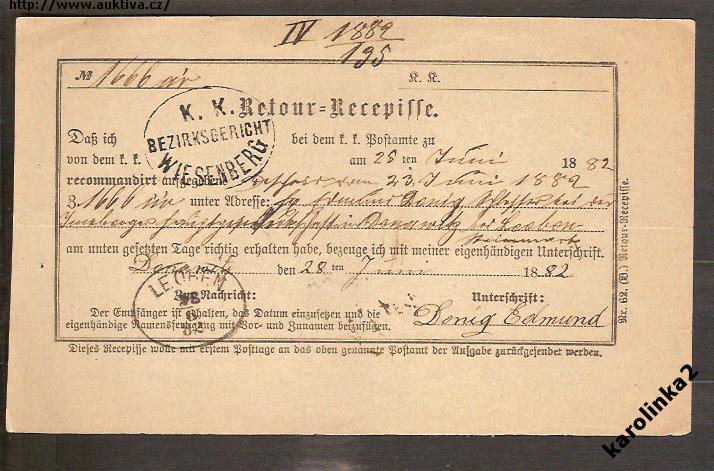 http://www.auktiva.cz/
IV 1882/195
№ 1666 civ K. K.
K. K. Retour=Recepisse.
K. K. BEZIRKSGERICHT WIESENBERG
Daß ich bei dem k. k. Postamte zu
von dem k. k. am 25 ten Juni 1882
recommandirt aufgegeben vom 23. Juni 1882
Z. 1666 civ unter Adresse: Edmund Donig
in Donawitz bei Leoben
Steiermark
am unten gesetzten Tage richtig erhalten habe, bezeuge ich mit meiner eigenhändigen Unterschrift.
Donawitz den 28 ten Juni 1882
LEOBEN
Zur Nachricht: Unterschrift:
Der Empfänger ist gehalten, das Datum einzusetzen und die
eigenhändige Namensfertigung mit Vor- und Zunamen beizufügen.
Donig Edmund
Dieses Recepisse wolle mit erstem Posttage an das oben genannte Postamt der Aufgabe zurückgesendet werden.
Nr. 62. (D.) Retour-Recepisse.
karolinka2